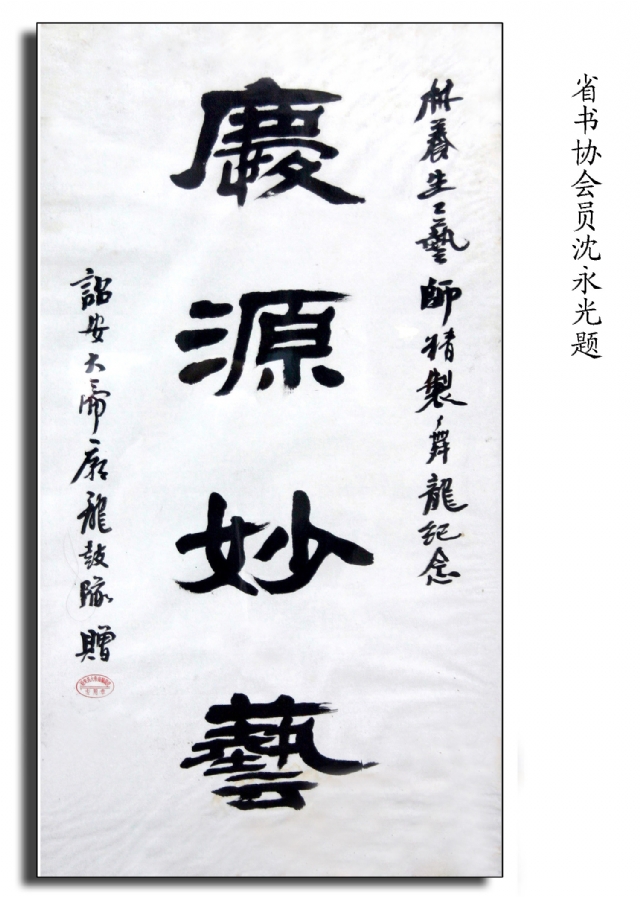 省书协会员沈永光题
林養生工藝師精製舞龍紀念
慶源妙藝
詔安大帝廟龍鼓隊贈